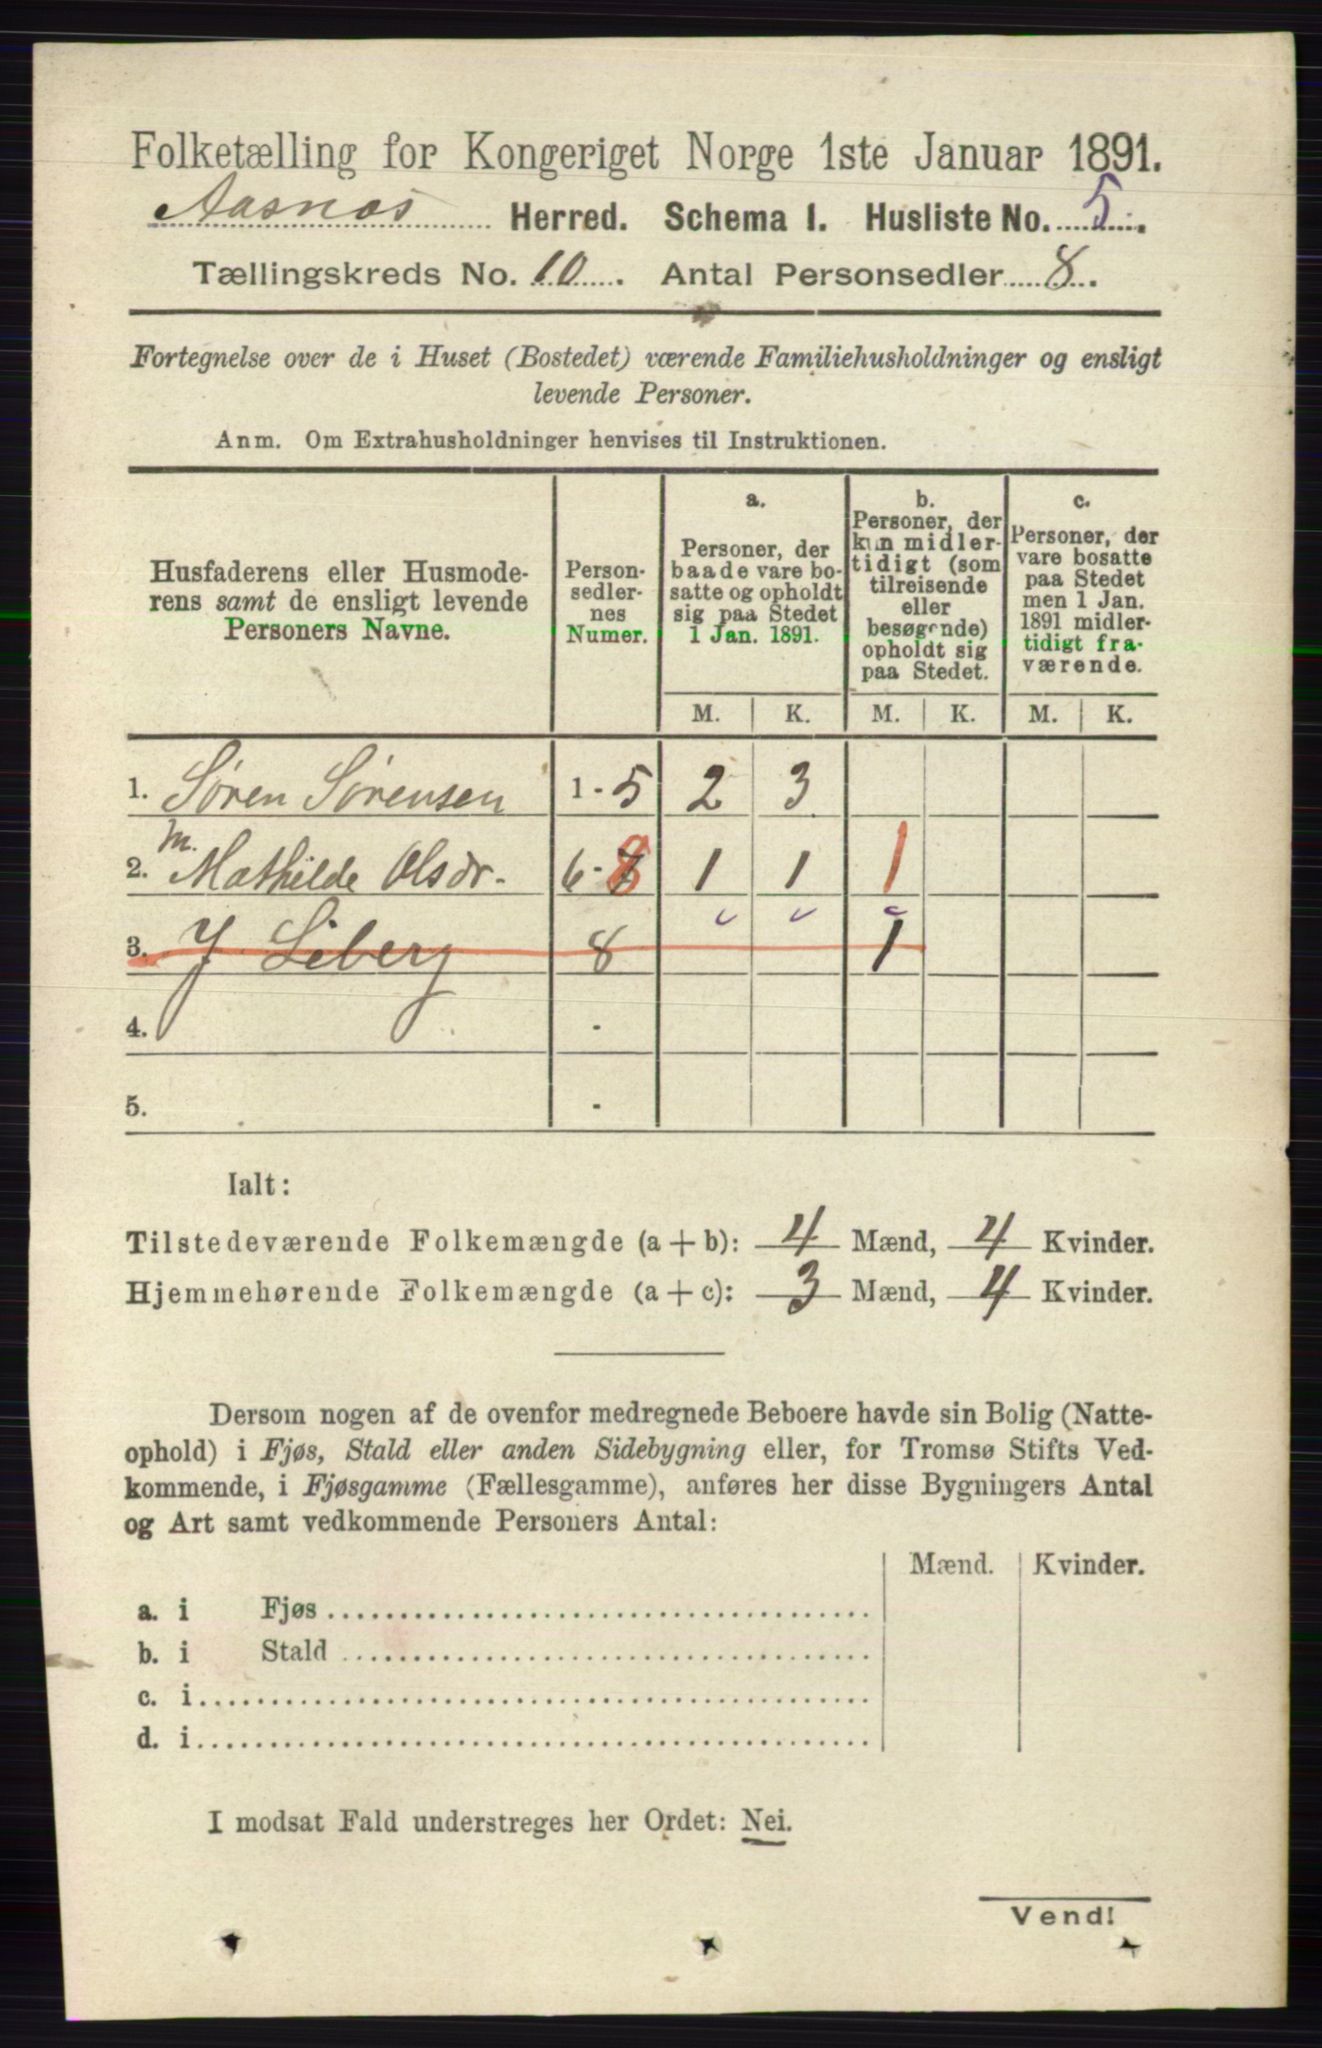 Folketælling for Kongeriget Norge 1ste Januar 1891.
Aasnes Herred. Schema I. Husliste No. 5.
Tællingskreds No. 10. Antal Personsedler 8.
Fortegnelse over de i Huset (Bostedet) værende Familiehusholdninger og ensligt
levende Personer.
Anm. Om Extrahusholdninger henvises til Instruktionen.
Husfaderens eller Husmode-
rens samt de ensligt levende
Personers Navne.
Person-
sedler-
nes
Numer.
a.
Personer, der
baade vare bo-
satte og opholdt
sig paa Stedet
1 Jan. 1891.
b.
Personer, der
kun midler-
tidigt (som
tilreisende
eller
besøgende)
opholdt sig
paa Stedet.
c.
Personer, der
vare bosatte
paa Stedet
men 1 Jan.
1891 midler-
tidigt fra-
værende.
M. K. M. K. M. K.
1. Søren Sørensen 1-5 2 3
m.
2. Mathilde Olsdr. 6-8 1 1 1
3. J Liberg 8 1
4. -
5. -
Ialt:
Tilstedeværende Folkemængde (a + b): 4 Mænd, 4 Kvinder.
Hjemmehørende Folkemængde (a + c): 3 Mænd, 4 Kvinder.
Dersom nogen af de ovenfor medregnede Beboere havde sin Bolig (Natte-
ophold) i Fjøs, Stald eller anden Sidebygning eller, for Tromsø Stifts Ved-
kommende, i Fjøsgamme (Fællesgamme), anføres her disse Bygningers Antal
og Art samt vedkommende Personers Antal:
Mænd. Kvinder.
a. i Fjøs
b. i Stald
c. i
d. i
I modsat Fald understreges her Ordet: Nei.
Vend!